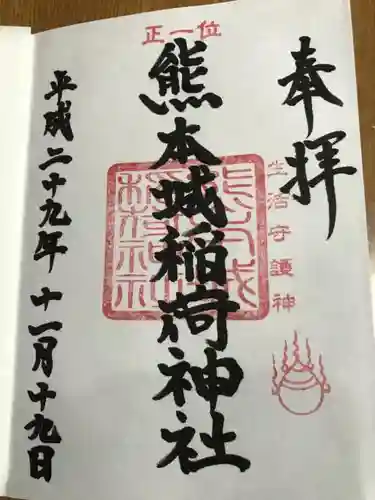 奉拝
生活守護神
正一位
熊本城稲荷神社
平成二十九年十一月十九日